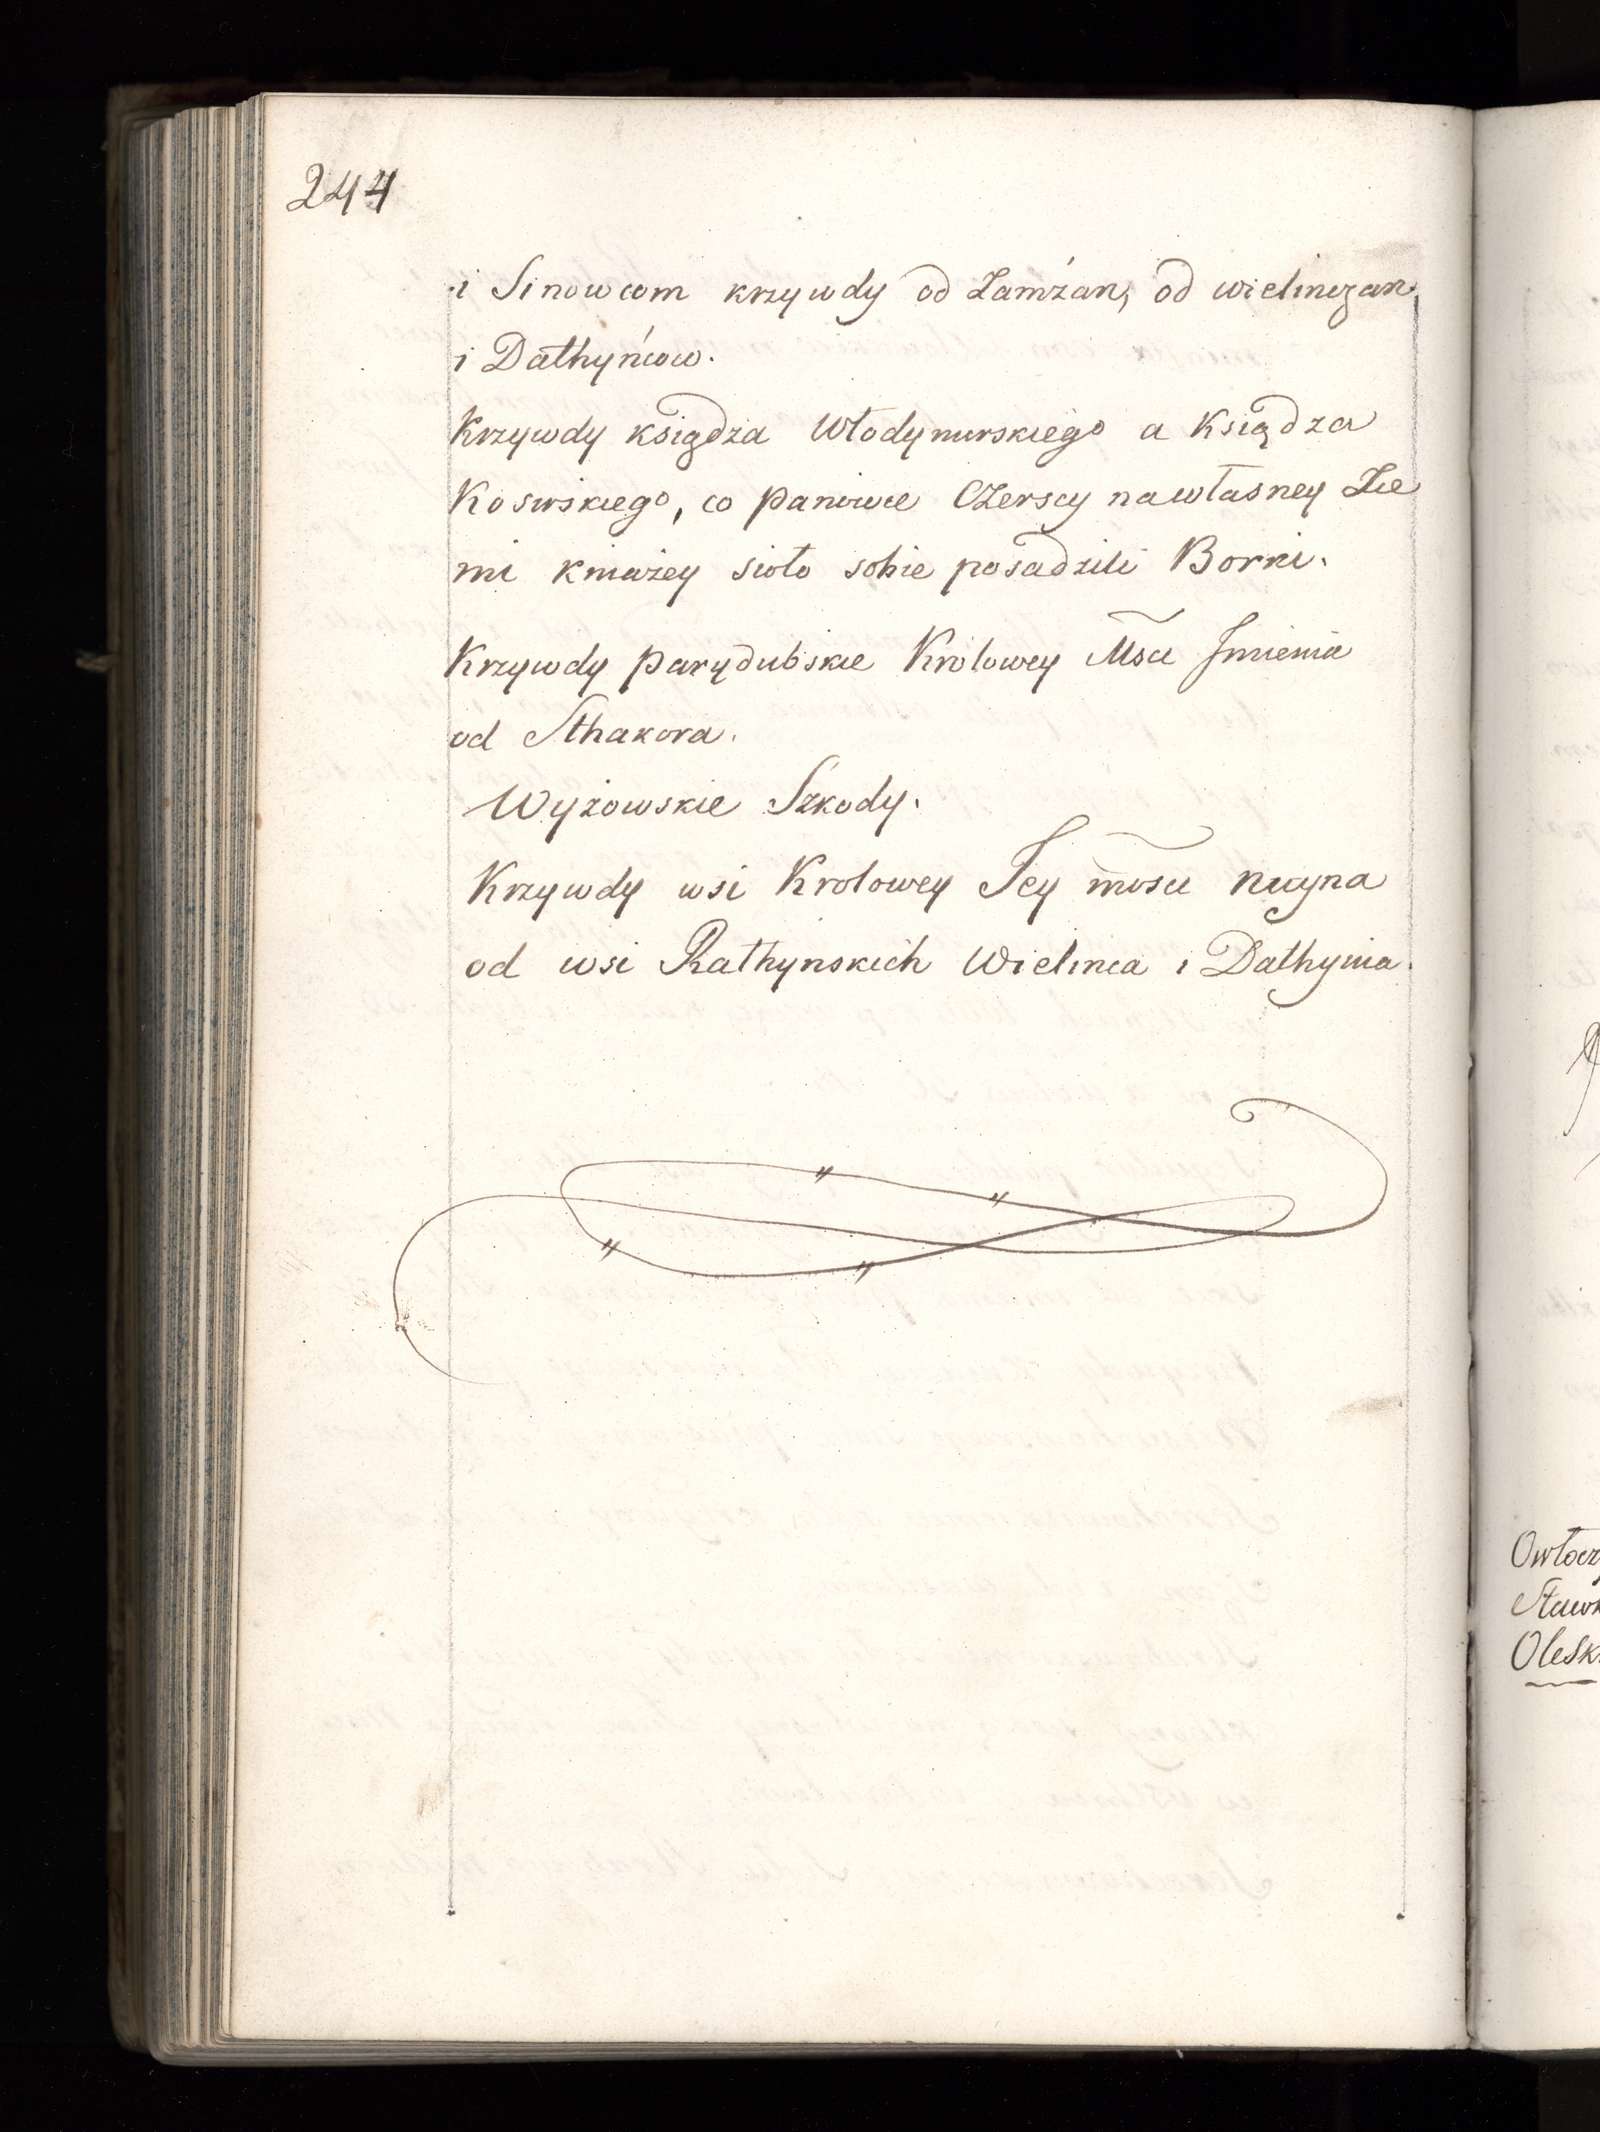 244
i Sinowcom krzywdy od Zamżan, od wielinczan
i Dathyńcow.
Krzywdy księdza Włodymirskiego a Księdza
Kosirskiego, co panowie Czerscy na własney Zie
mi kniażey sioło sobie posadzili Borki.
Krzywdy parydubskie Krolowey Msci Jmienia
od Sthakora.
Wyżowskie Szkody.
Krzywdy wsi Krolowey Jey mosci
od wsi Rathynskich Wielinca i Dathynia.
Owłocz
Olesk